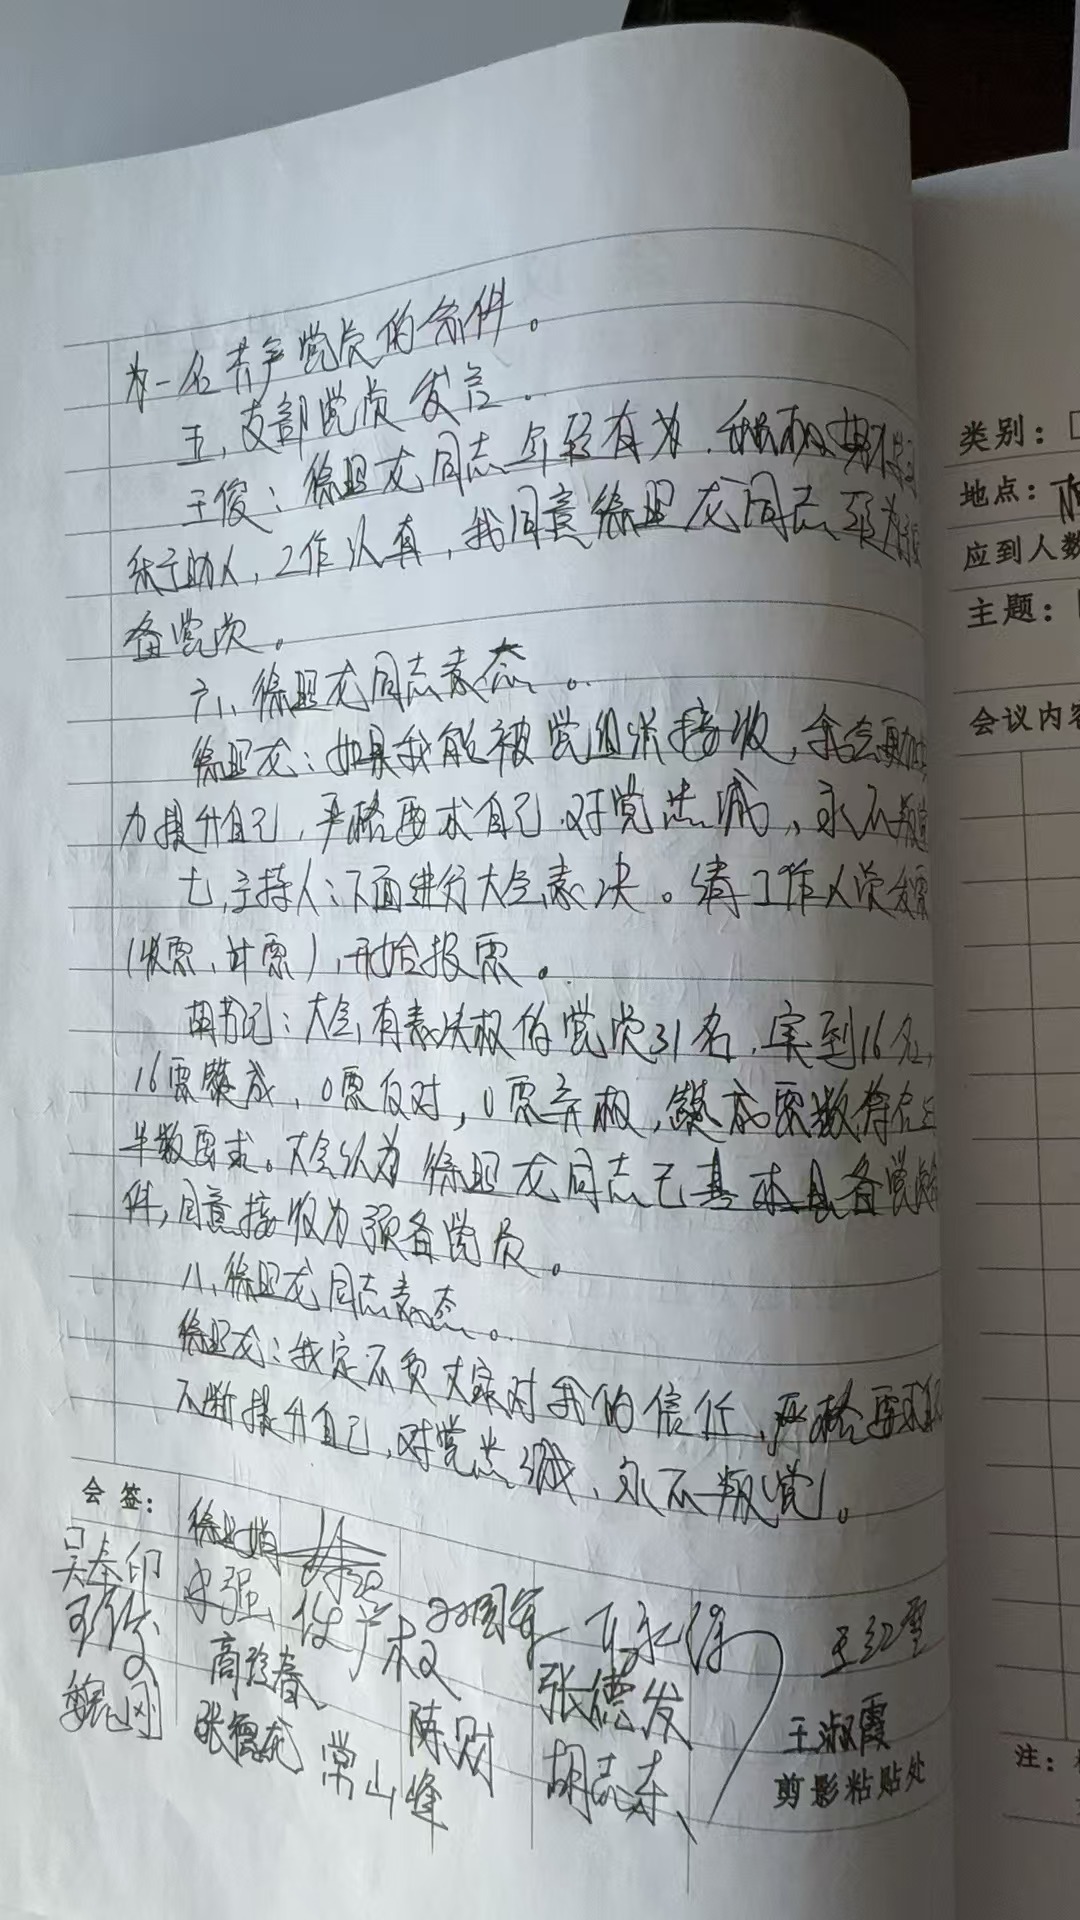 为一名共产党员的条件。
五、支部党员发言。
王俊：徐照龙同志年轻有为，积极
乐于助人，工作认真，我同意徐照龙同志 为预
备党员。
六、徐照龙同志表态。
徐照龙：如果我能被党组织接收，我会更加
力提升自己，严格要求自己，对党忠诚，永不叛党
七、主持人：下面进行大会表决。请工作人员发票
（收票、计票），开始投票。
胡书记：大会有表决权的党员31名，实到16名，
16票赞成，0票反对，0票弃权，赞成票数符合
半数要求。大会认为徐照龙同志已基本具备党员条
件，同意接收为预备党员。
八、徐照龙同志表态。
徐照龙：我定不负大家对我的信任，严格要求自己
不断提升自己，对党忠诚，永不叛党。
会签：
吴奉印
史强
高珍春 陈财 张德发 王红雪
魏刚 张德龙 常山峰 胡志东 王淑霞
剪影粘贴处
类别：
地点：
应到人数
主题：
会议内容
注：